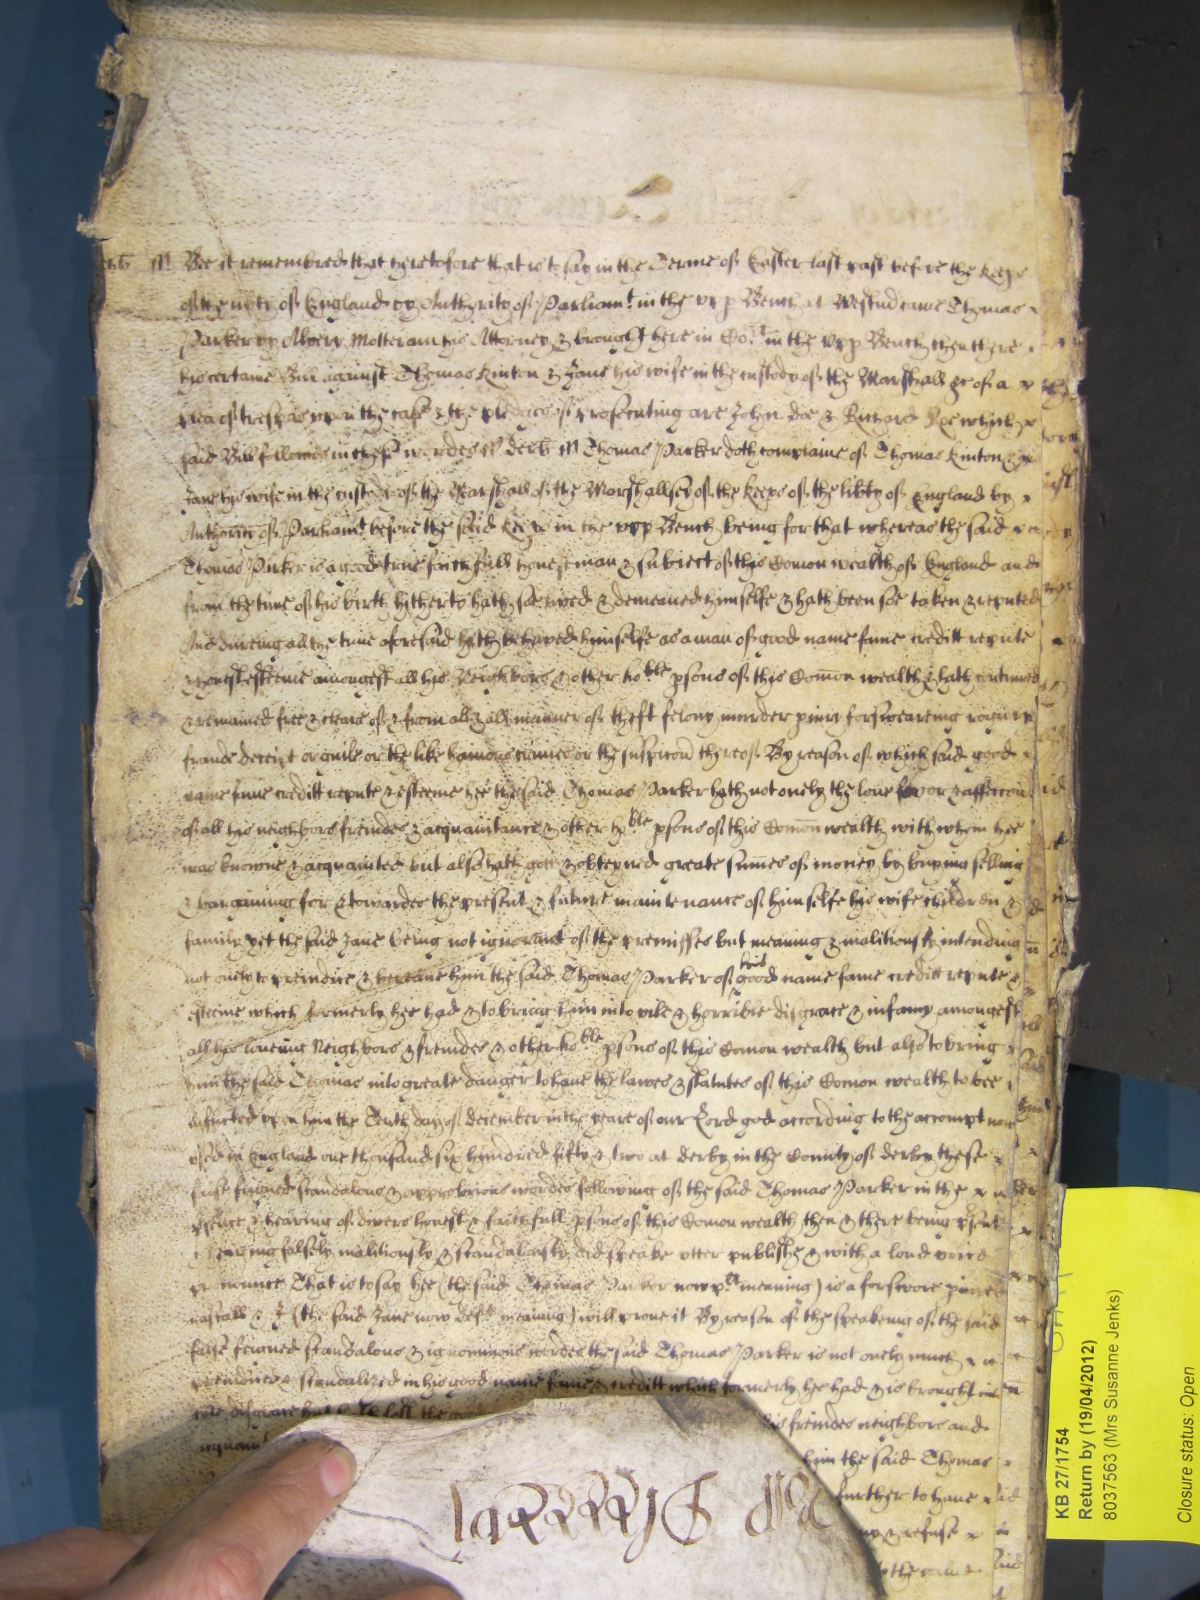 Bee it remembred that heretofore that is to say in the Terme of Easter last past before the Keeps
of the libty of England by Authority of Parliamt in the upp Bench at Westmr came Thomas
Parker by Attorney & brought here in Cort in the upp Bench then there
his certaine Bill against Thomas Kinton & Jane his wife in the custody of the Marshall &c of a
plea of trespas upon the case & the pledges of prosecuting are John Doe & Richard Roe which
said Bill followes in these wordes ss Derb ss Thomas Parker doth complaine of Thomas Kinton &
Jane his wife in the custody of the Marshall of the Marshallsey of the Keeps of the libty of England by
Authority of Parliamt before the said Keeps in the upp Bench being for that whereas the said
Thomas Parker is a good true faithfull honest man & subiect of this Comon wealth of England and
from the time of his birth hitherto hath soe lived & demeaned himselfe & hath been soe taken & reputed
And dureing all the time aforesaid hath behaved himselfe as a man of good name fame creditt repute
& honest esteeme amongest all his Neighbors & other ble psons of this Comon wealth & hath continued
& remained free & cleare of & from all & all manner of theft felony murder piury forsweareing
fraude deceipt or guile or the like hainous crimes or the suspicon thereof By reason of which said good
name fame creditt repute & esteeme hee the said Thomas Parker hath not onely the love favor & affeccon
of all his neighbors freindes & acquaintance & other ble psons of this Comon wealth with whom hee
was knowne & acquainted but also hath gott & obteyned greate sumes of money by buying selling
& bargaining for & towardes the present & future maintenance of himselfe his wife children &
family yet the said Jane being not ignorant of the premisses but meaning & malitiously intending
not onely to preiudice & him the said Thomas Parker of his good name fame creditt repute &
esteeme which formerly hee had & to bring him into vile & horrible disgrace & infamy amongest
all his loveing Neighbors & freindes & other ble psons of this Comon wealth but also to bring
him the said Thomas into greate danger to have the lawes & statutes of this Comon wealth to bee
inflicted upon him the Tenth day of December in the yeare of our Lord god according to the accompt now
used in England one thousand six hundred fifty & two at Derby in the County of Derby these
false feigned scandalous & opprobrious wordes following of the said Thomas Parker in the
psence & hearing of divers honest & faithfull psons of this Comon wealth then & there being psent
& hearing falsely malitiously & scandalously did speake utter publishe & with a loud voice
pnounce That is to say hee (the said Thomas Parker now plt meaning) is a forswore piured
rascall & I (the said Jane now deft meaning) will prove it By reason of the speakeing of the said
false feigned scandalous & ignominious wordes the said Thomas Parker is not onely much
preiudiced & scandalized in his good name fame & creditt which formerly he had & is brought in
disgrace but his freindes neighbors and
acquaint him the said Thomas
further to have
& refuse
to the value
KB 27/1754
Return by (19/04/2012)
8037563 (Mrs Susanne Jenks)
Closure status: Open